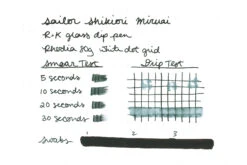 Sailor Shikiori Miruai
R+K glass dip pen
Rhodia 80g white dot grid
Smear Test Drip Test
5 seconds
10 seconds
20 seconds
30 seconds
1 2 3
swabs